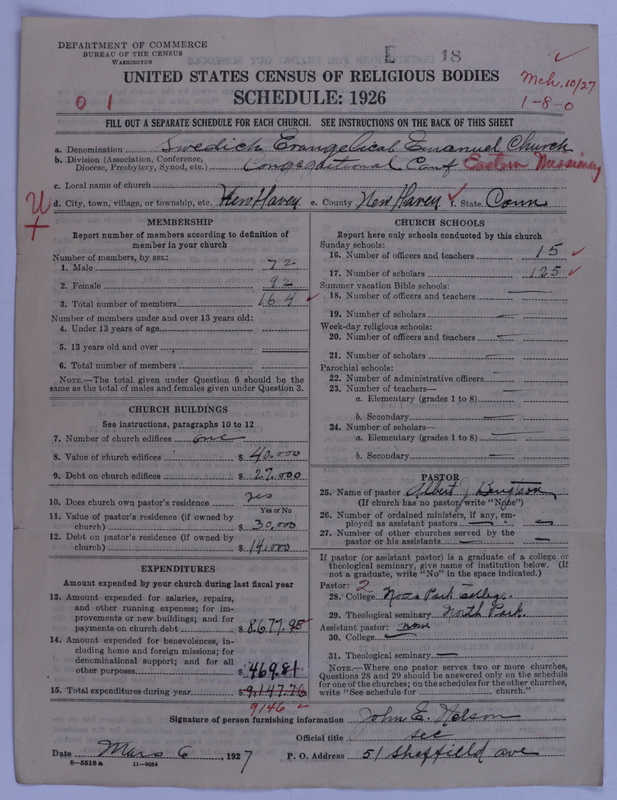 DEPARTMENT OF COMMERCE
BUREAU OF THE CENSUS
WASHINGTON
E 18
UNITED STATES CENSUS OF RELIGIOUS BODIES
SCHEDULE: 1926
Mch. 10/27
1-8-0
0 1
FILL OUT A SEPARATE SCHEDULE FOR EACH CHURCH. SEE INSTRUCTIONS ON THE BACK OF THIS SHEET
a. Denomination Swedich Evangelical Emanuel Church
b. Division (Association, Conference, Diocese, Presbytery, Synod, etc.) Eastern
c. Local name of church
d. City, town, village, or township, etc. New Haven e. County New Haven f. State Conn
MEMBERSHIP
Report number of members according to definition of
member in your church
Number of members, by sex:
1. Male 72
2. Female 92
3. Total number of members 164
Number of members under and over 13 years old:
4. Under 13 years of age
5. 13 years old and over
6. Total number of members
NOTE.—The total given under Question 6 should be the
same as the total of males and females given under Question 3.
CHURCH BUILDINGS
See instructions, paragraphs 10 to 12
7. Number of church edifices one
8. Value of church edifices $ 40.000
9. Debt on church edifices $ 27.000
10. Does church own pastor's residence yes
Yes or No
11. Value of pastor's residence (if owned by
church) $ 30,000
12. Debt on pastor's residence (if owned by
church) $ 14.000
EXPENDITURES
Amount expended by your church during last fiscal year
13. Amount expended for salaries, repairs,
and other running expenses; for im-
provements or new buildings; and for
payments on church debt $ 8677.95
14. Amount expended for benevolences, in-
cluding home and foreign missions; for
denominational support; and for all
other purposes $ 469.81
15. Total expenditures during year $ 9,147.76
9146
CHURCH SCHOOLS
Report here only schools conducted by this church
Sunday schools:
16. Number of officers and teachers 15
17. Number of scholars 125
Summer vacation Bible schools:
18. Number of officers and teachers —
19. Number of scholars —
Week-day religious schools:
20. Number of officers and teachers —
21. Number of scholars —
Parochial schools:
22. Number of administrative officers —
23. Number of teachers—
a. Elementary (grades 1 to 8) —
b. Secondary —
24. Number of scholars—
a. Elementary (grades 1 to 8) —
b. Secondary —
PASTOR
25. Name of pastor Albert J
(If church has no pastor, write "None")
26. Number of ordained ministers, if any, em-
ployed as assistant pastors —
27. Number of other churches served by the
pastor or his assistants —
If pastor (or assistant pastor) is a graduate of a college or
theological seminary, give name of institution below. (If
not a graduate, write "No" in the space indicated.)
Pastor: 2
28. College Park college
29. Theological seminary North Park.
Assistant pastor:
30. College —
31. Theological seminary —
NOTE.—Where one pastor serves two or more churches,
Questions 28 and 29 should be answered only on the schedule
for one of the churches; on the schedules for the other churches,
write "See schedule for ........ church."
Signature of person furnishing information John E. Nelson
Official title sec
Date Mars 6, 1927 P. O. Address 51 Sheffield ave
8-5518a 11-9054